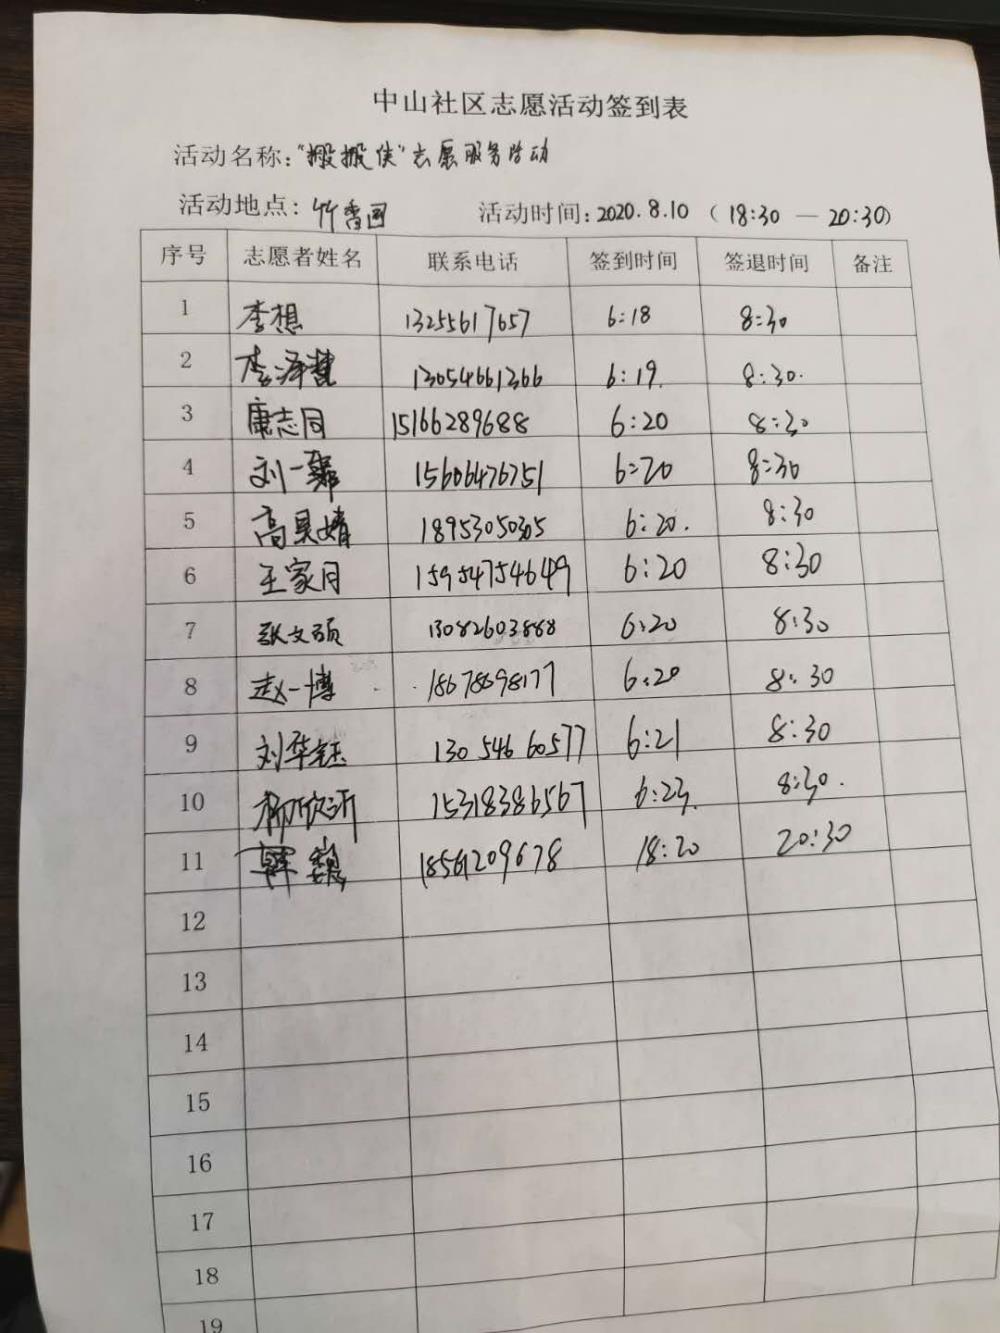 中山社区志愿活动签到表
活动名称:"搬搬侠"志愿服务活动
活动地点: 竹香园 活动时间: 2020.8.10 (18:30 — 20:30)
序号 志愿者姓名 联系电话 签到时间 签退时间 备注
1 李想 13255617657 6:18 8:30
2 李泽慧 13054661366 6:19. 8:30.
3 康志同 15166289688 6:20 8:30
4 刘一霖 15606476751 6:20 8:30
5 高昊婧 18953050305 6:20. 8:30
6 王家月 15954754649 6:20 8:30
7 张文硕 13082603888 6:20 8:30
8 赵一博 18678698177 6:20 8:30
9 刘华钰 13054660577 6:21 8:30
10 杨欣沂 15318386567 6:23. 8:30.
11 韩巍 18561209678 18:20 20:30
12
13
14
15
16
17
18
19